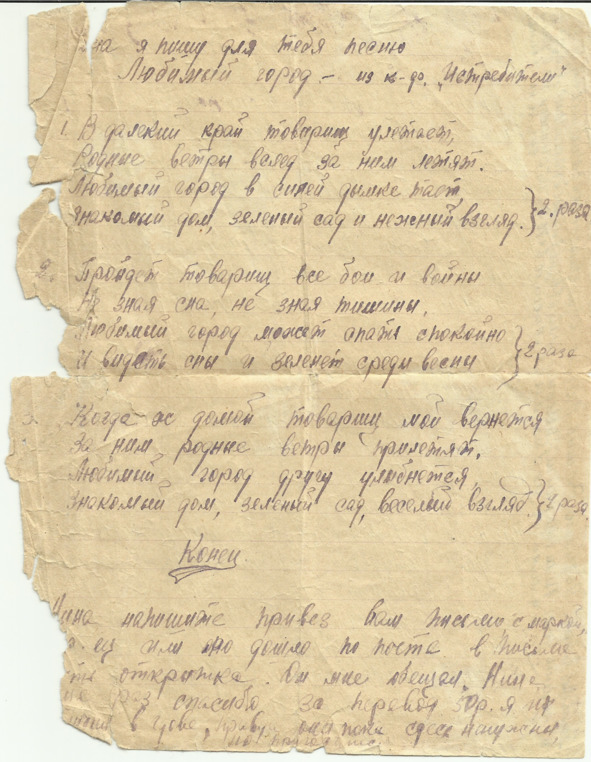 на я пишу для тебя песню
Любимый город - из к-др. „Истребители"
1. В далекий край товарищ улетает,
Родные ветры вслед за ним летят.
Любимый город в синей дымке тает
Знакомый дом, зеленый сад и нежный взгляд. } 2. раза
2. Пройдет товарищ все бои и войны
Не зная сна, не зная тишины,
Любимый город может спать спокойно
И видеть сны и зеленет среди весны } 2 раза
Когда-ж домой товарищ мой вернется
За ним родные ветры прилетят.
Любимый город другу улыбнется,
Знакомый дом, зеленый сад, веселый взгляд } 2 раза
Конец
Нина напишите привез вам письмо с маркой,
или оно дошло по поста в письме
открытка. Он мне обещал. Нина
раз спасибо за перевод 30р. я их
в они пока здесь